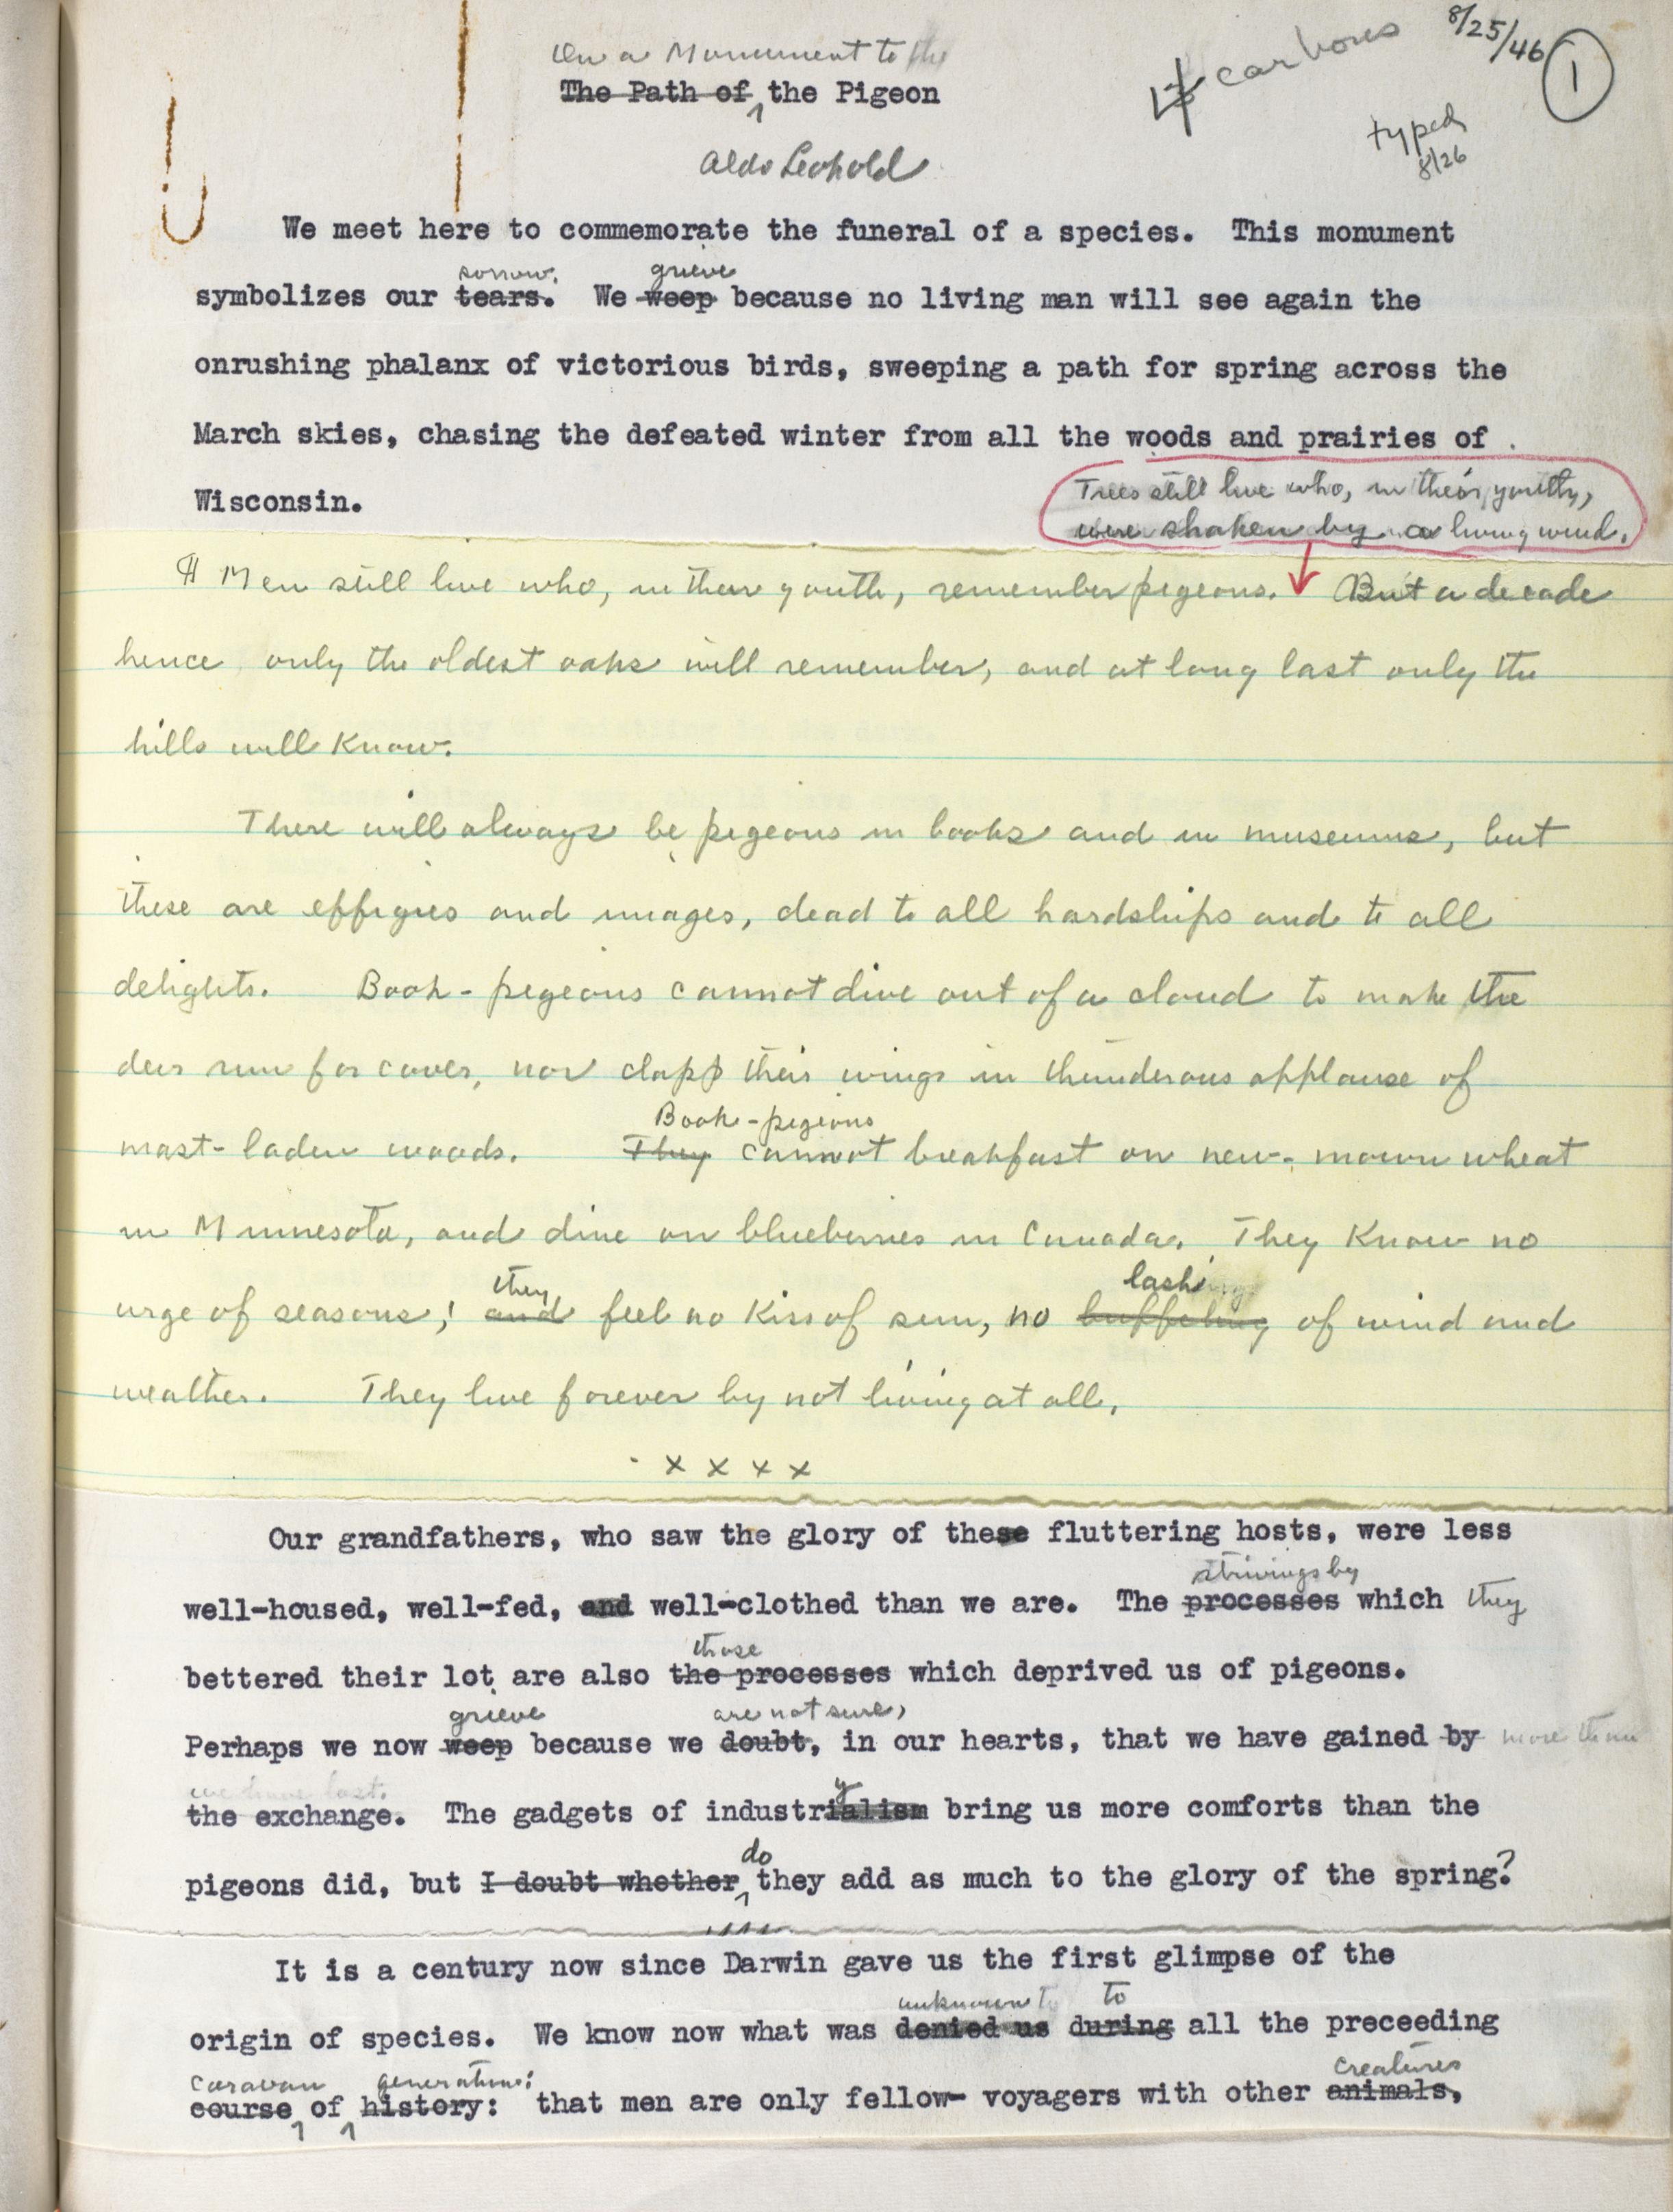 8/25/46
1
carbons
On a Monument to the
The Path of the Pigeon
typed
8/26
Aldo Leopold
We meet here to commemorate the funeral of a species. This monument
sorrow. grieve
symbolizes our tears. We weep because no living man will see again the
onrushing phalanx of victorious birds, sweeping a path for spring across the
March skies, chasing the defeated winter from all the woods and prairies of
Wisconsin.
Trees still live who, in their youth,
were shaken by a living wind.
¶ Men still live who, in their youth, remember pigeons. But a decade
hence only the oldest oaks will remember, and at long last only the
hills will know.
There will always be pigeons in books and in museums, but
these are effigies and images, dead to all hardships and to all
delights. Book-pigeons cannot dive out of a cloud to make the
deer run for cover, nor clap their wings in thunderous applause of
Book-pigeons
mast-laden woods. They cannot breakfast on new-mown wheat
in Minnesota, and dine on blueberries in Canada. They know no
they lashing
urge of seasons; and feel no kiss of sun, no buffeting of wind and
weather. They live forever by not living at all.
x x x x
Our grandfathers, who saw the glory of these fluttering hosts, were less
strivings by
well-housed, well-fed, and well-clothed than we are. The processes which they
those
bettered their lot are also the processes which deprived us of pigeons.
grieve are not sure,
Perhaps we now weep because we doubt, in our hearts, that we have gained by more than
we have lost. y
the exchange. The gadgets of industrialism bring us more comforts than the
do
pigeons did, but I doubt whether they add as much to the glory of the spring?
It is a century now since Darwin gave us the first glimpse of the
unknown to to
origin of species. We know now what was denied us during all the preceeding
caravan generations: creatures
course of history: that men are only fellow- voyagers with other animals,